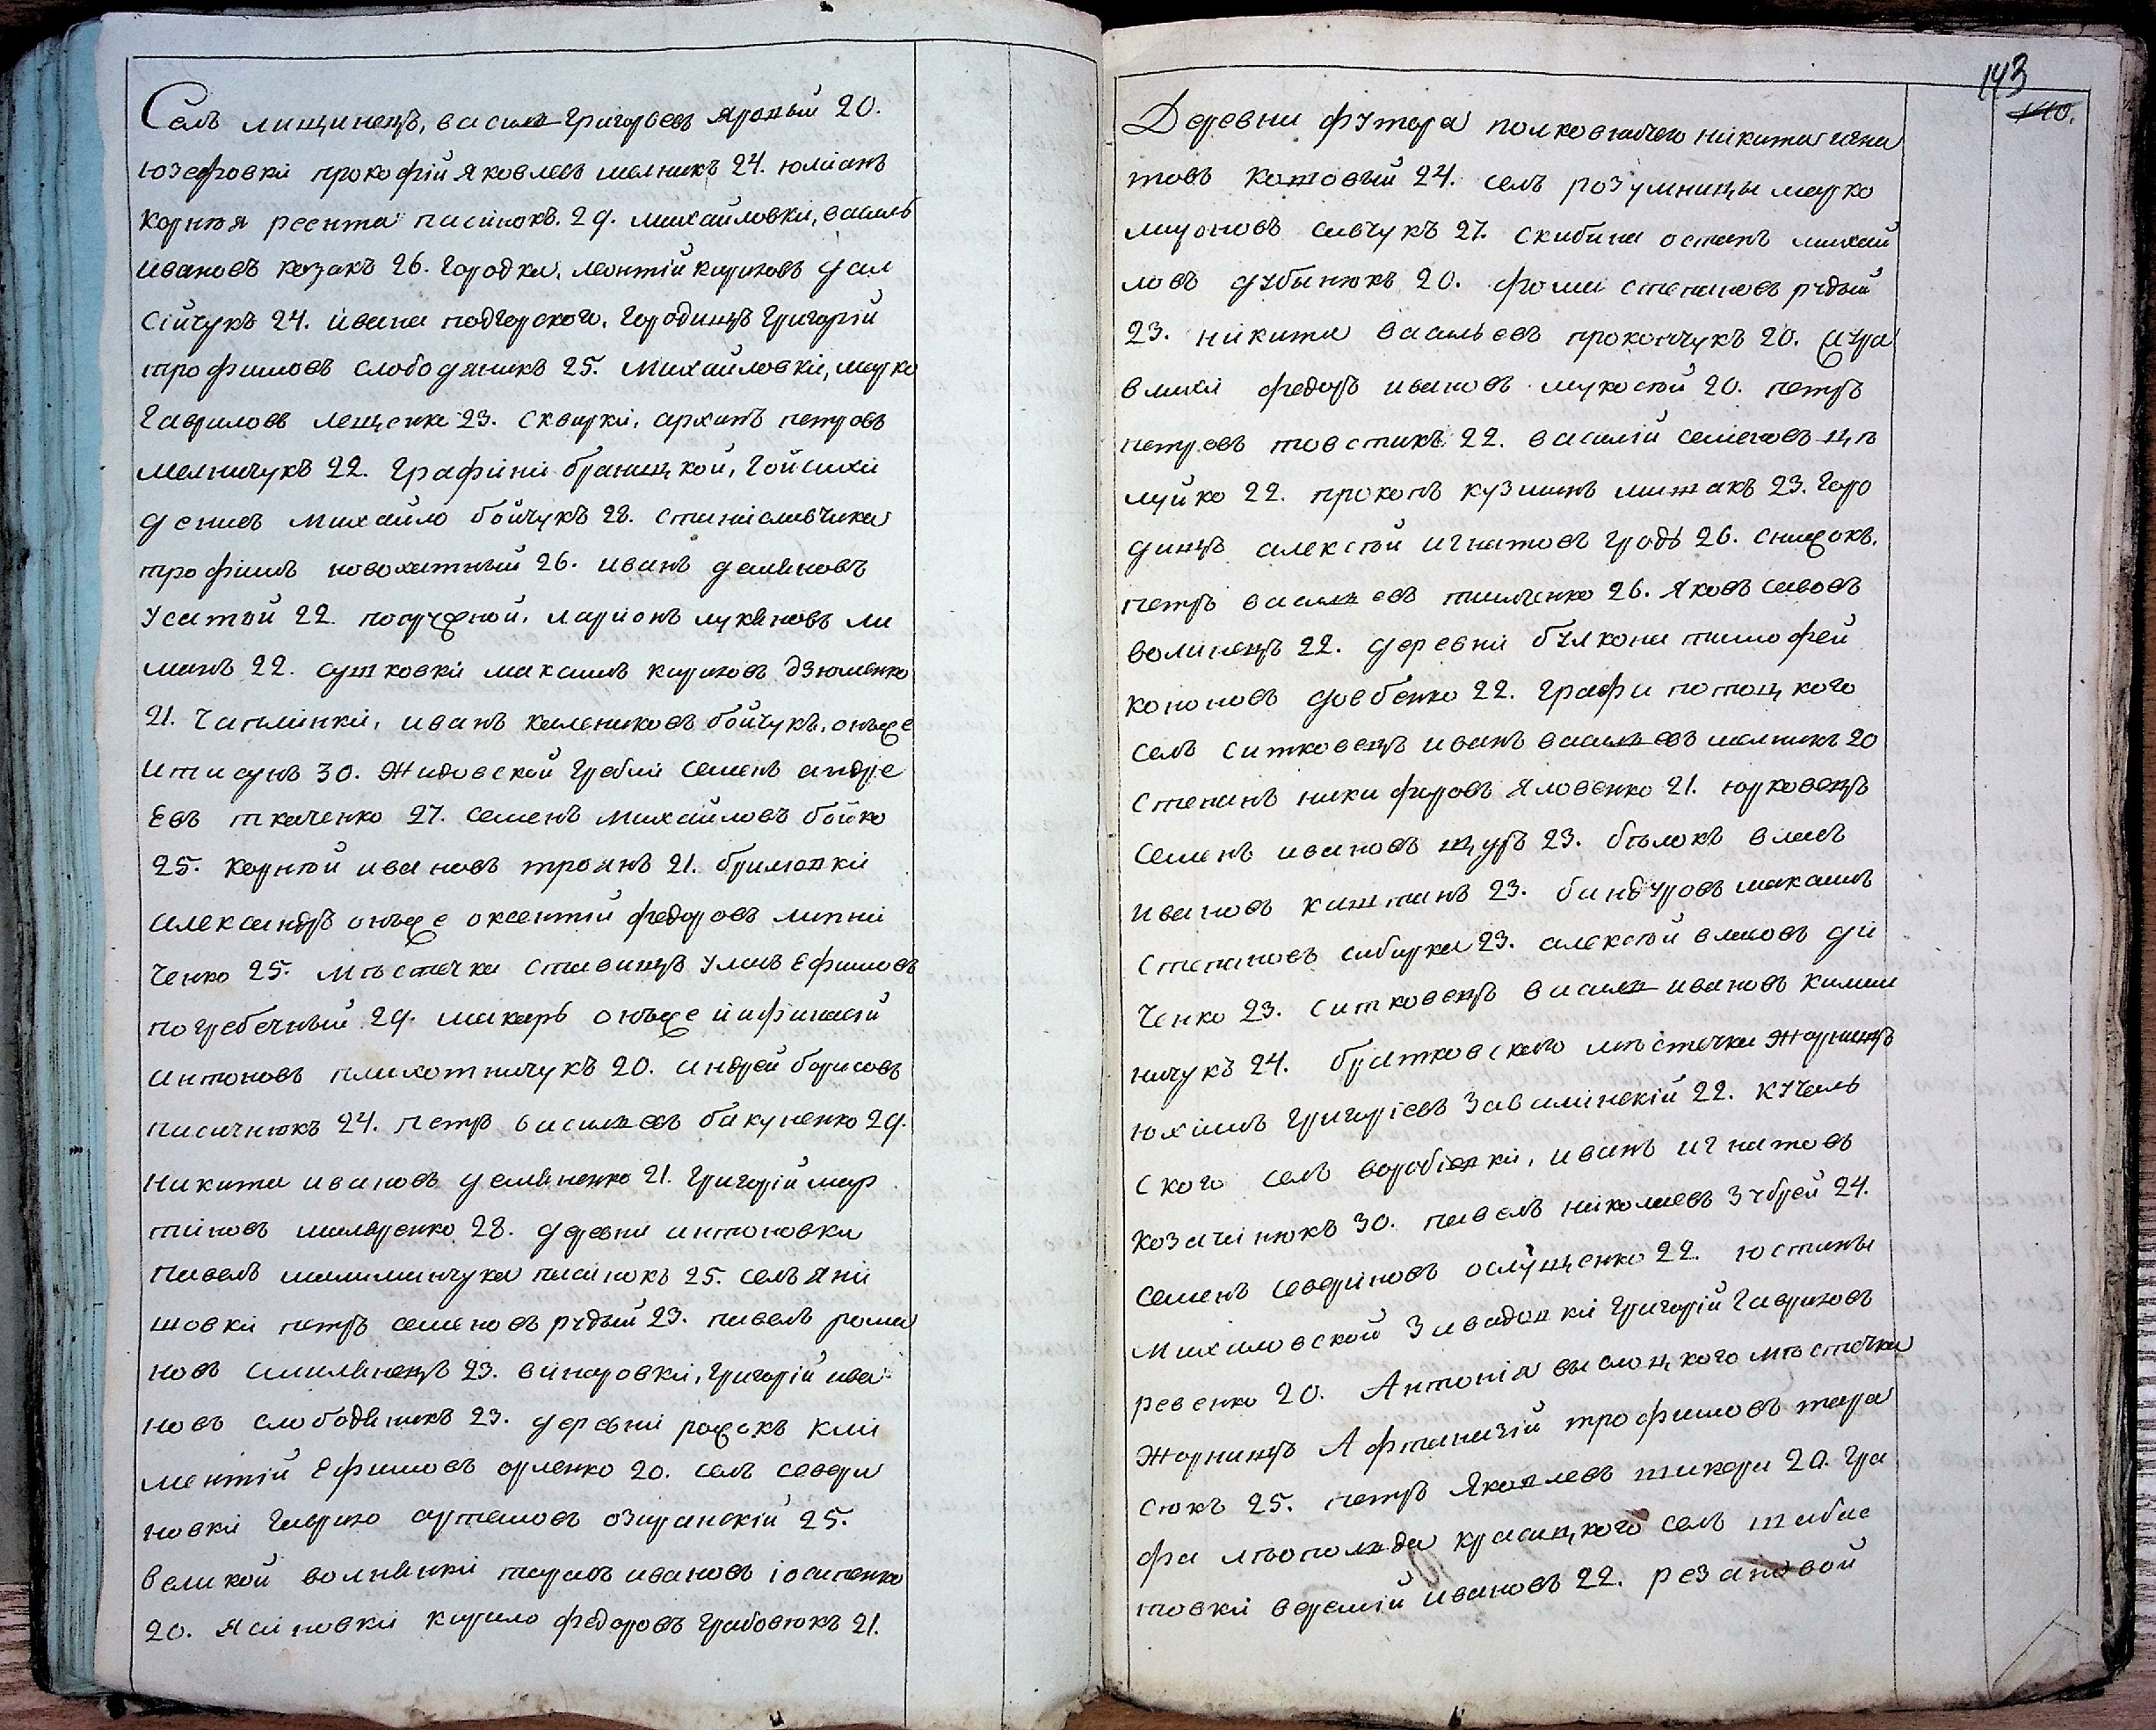 Селъ лищинецъ, василь Григорьевъ яровый 20.
юзефовки прокофiй Яковлевъ мелникъ 24. юлiанъ
Корнѣя реента пасинокъ. 29. михайловки, василь
ивановъ козакъ 26. Городка, леонтiй кириловъ гал
Сiйчукъ 24. ивана подгорского, Городищъ Григорiй
трофимовъ слободяникъ 25. Михайловкi, марко
Гавриловъ лещенко 23. Сквирки, архипъ петровъ
мелничукъ 22. Графинi браницкой, Гойсихи
денисъ михайло бойчукъ 28. станiславчика
трофимъ новохатный 26. иванъ демяновъ
Усатый 22. погребной, ларионъ лукяновъ ли
манъ 22. сушковки максимъ кириловъ дзюменко
21. Чаплинкi, иванъ калениковъ бойчукъ, онъже
итисунъ 30. Жидовской Гребли семенъ андре
Евъ ткаченко 27. семенъ Михайловъ бойко
25. Корнѣй ивановъ троянъ 21. брилiовкi
александръ онъже оксентiй федоровъ липнi
Ченко 25. мѣстечка ставищъ Уласъ Ефимовъ
погребечный 29. макаръ онъже
антоновъ плихотничукъ 20. андрей борисовъ
пасичнюкъ 24. петръ василевъ бакуненко 29.
никита ивановъ демяненко 21. Григорiй мар
тиновъ маляренко 28. деревни антоновки
павелъ пасинокъ 25. селъ Янi
шовки петръ семеновъ рудый 23. павелъ рома
новъ смилянецъ 23. винаровки, Григорiй ива
новъ слободяникъ 23. деревнi рожокъ Клi
ментiй Ефимовъ орленко 20. селъ севери
новки Гаврило артемовъ озиранскiй 25.
великой волнянки тарасъ ивановъ iосипенко
20. Ясиновки кирило федоровъ Грабовюкъ 21.
143
140.
Деревни футора полковничего никита игна
товъ котовый 24. селъ розумницы марко
мироновъ савчукъ 27. скибина остапъ михай
ловъ дубынюкъ 20. фома степановъ рудый
23. никита васильевъ прокопчукъ 20. жура
влихи федоръ ивановъ мукостѣй 20. петръ
петровъ товстикъ 22. василiй семеновъ цѣ
луйко 22. прокопъ кузминъ лишакъ 23. Горо
дищъ алексѣй игнатовъ Гродь 26. снижокъ,
петръ василевъ пилипенко 26. Яковъ савовъ
волинецъ 22. деревнi булкона тимофей
кононовъ довбенко 22. Графа потоцкого
селъ ситковецъ иванъ василевъ мелникъ 20
степанъ никифоровъ яловенко 21. юрковецъ
семенъ ивановъ щуръ 23. бѣлокъ власъ
ивановъ каштанъ 23. бандуровъ максимъ
степановъ сибирка 23. алексѣй власовъ дя
Ченко 23. ситковецъ василь ивановъ калаш
ничукъ 24. братковского мѣстечка Жорнищъ
юхимъ Григорiевъ завалiнскiй 22. Кучель
ского селъ воробiевкi, иванъ игнатовъ
козачинюкъ 30. павелъ николаевъ Зубрей 24.
семенъ севериновъ ослущенко 22. юстины
михаловской Завадовкi Григорiй Гавриловъ
ревенко 20. Антонiя выслоцкого мѣстечка
Жорнищъ Афтаназiй трофимовъ тара
сюкъ 25. петръ Яковлевъ шкора 20. Гра
фа лѣополда красицкого селъ шабас
товки веремiй ивановъ 22. резановой